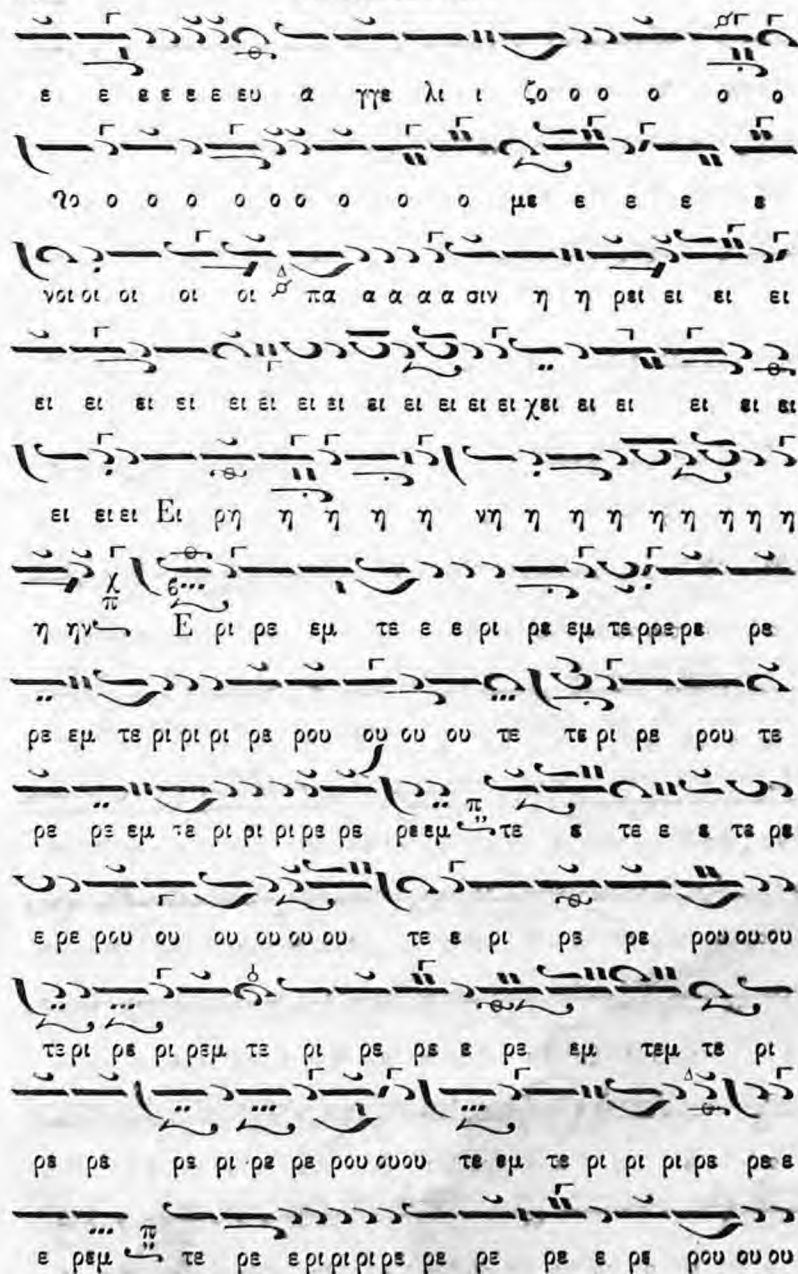 ε ε ε ε ε ε ευ α γγε λι ι ζο ο ο ο ο ο
ζο ο ο ο ο ο ο ο ο ο με ε ε ε ε
νοι οι οι οι οι πα α α α α σιν η η ρει ει ει ει
ει ει ει ει ει ει ει ει ει ει ει ει ει ει χει ει ει ει ει ει
ει ει ει Ει ρη η η η η νη η η η η η η η η
η ην Ε ρι ρε εμ τε ε ε ρι ρε εμ τε ρρε ρε ρε
ρε εμ τε ρι ρι ρι ρε ρου ου ου ου τε τε ρι ρε ρου τε
ρε ρε εμ τε ρι ρι ρι ρε ρε ρε εμ τε ε τε ε ε τε ρε
ε ρε ρου ου ου ου ου ου τε ε ρι ρε ρε ρου ου ου
τε ρι ρε ρι ρεμ τε ρι ρε ρε ε ρε εμ τεμ τε ρι
ρε ρε ρε ρι ρε ρε ρου ου ου τε εμ τε ρι ρι ρι ρε ρε ε
ε ρεμ τε ρε ε ρι ρι ρι ρε ρε ρε ρε ε ρε ρου ου ου